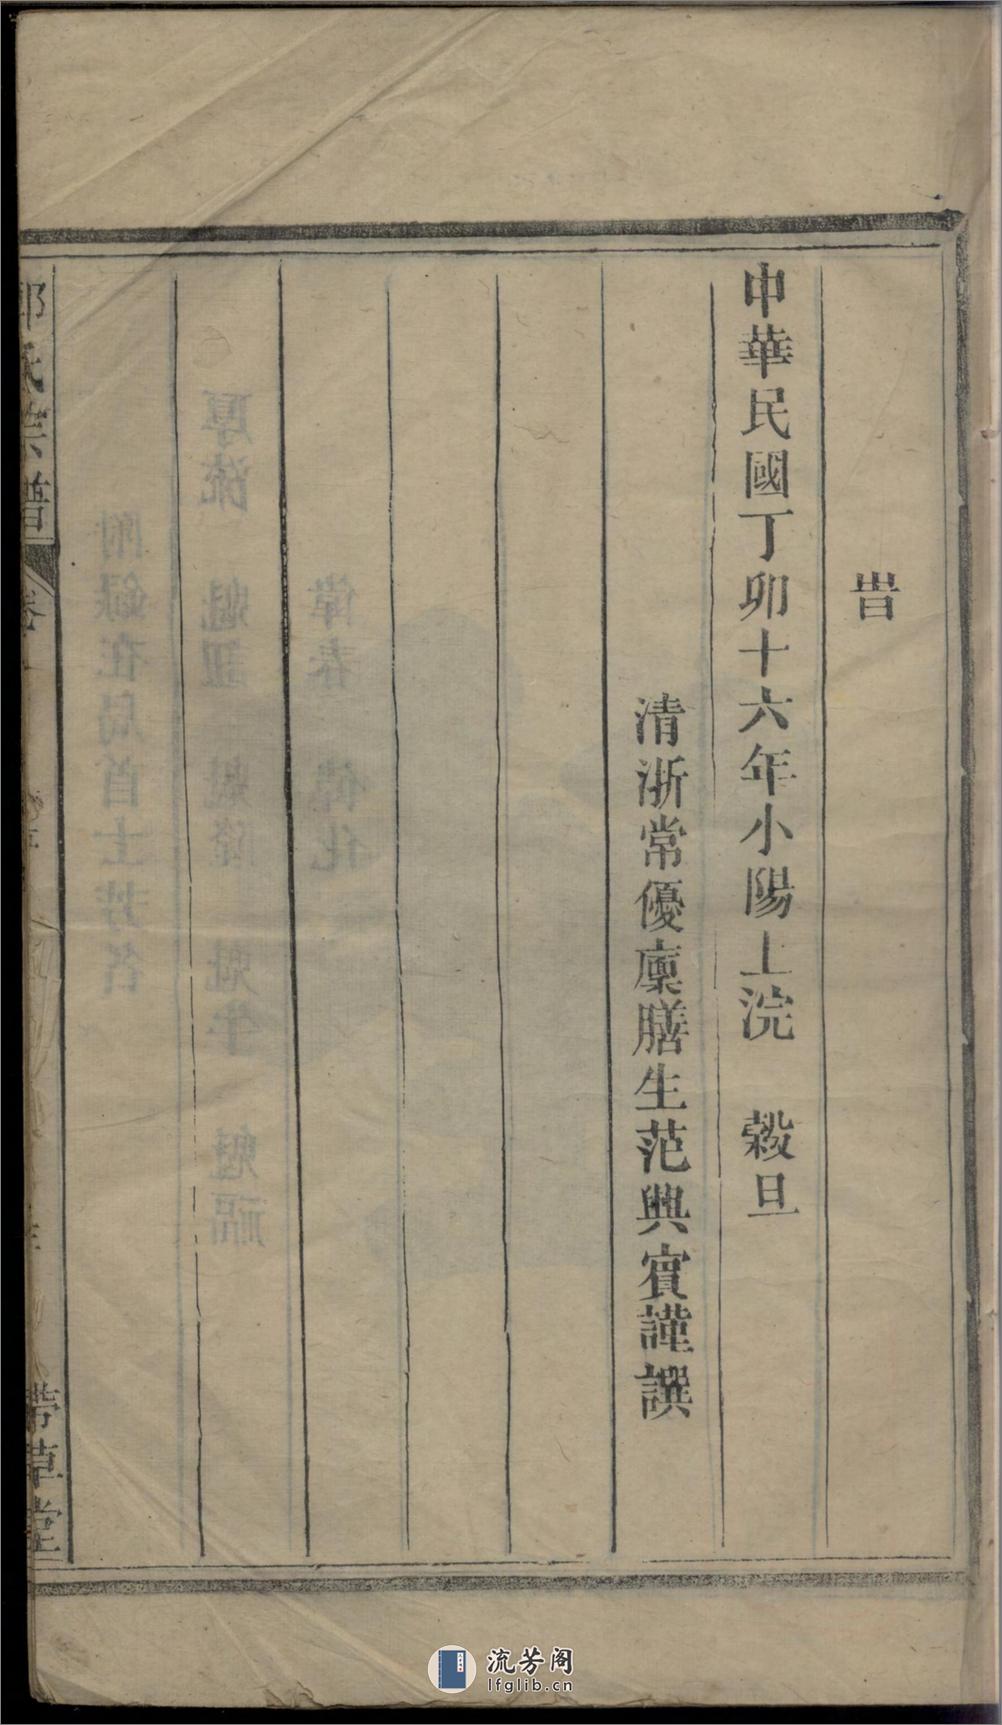 旹
中華民國丁卯十六年小陽上浣　穀旦
清浙常優廪膳生范興賓謹譔
氏宗譜
卷
帶草堂
流芳阁
lfglib.cn